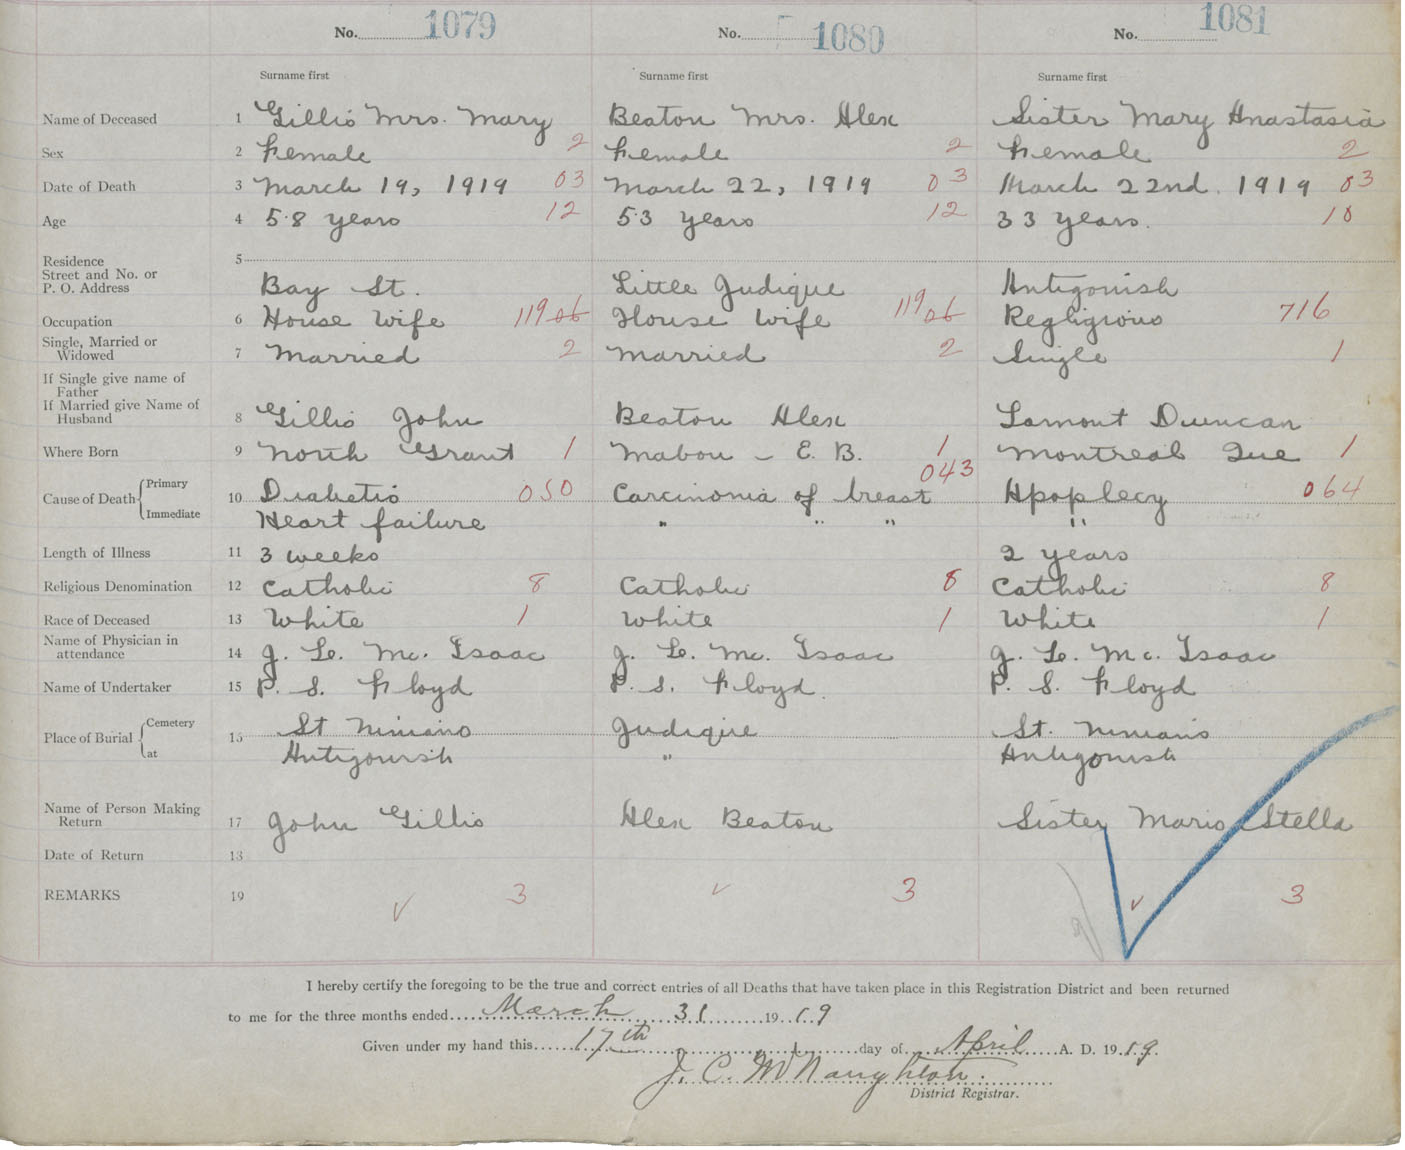 No. 1079 No. 1080 No. 1081
Surname first Surname first Surname first
Name of Deceased 1 Gillis Mrs. Mary Beaton Mrs. Alex Sister Mary Anastasia
Sex 2 Female 2 Female 2 Female 2
Date of Death 3 March 19, 1919 03 March 22, 1919 03 March 22nd. 1919 03
Age 4 58 years 12 53 years 12 33 years. 10
Residence 5
Street and No. or
P. O. Address Bay St. Little Judique Antigonish
Occupation 6 House Wife 11906 House Wife 11906 Regligious 716
Single, Married or
Widowed 7 Married 2 Married 2 Single 1
If Single give name of
Father
If Married give Name of
Husband 8 Gillis John Beaton Alex Lamont Duncan
Where Born 9 North Grant 1 Mabou - C. B. 1 Montreal Que 1
Cause of Death Primary 10 Diabetis 050 Carcinonia of breast 043 Apoplecy 064
Immediate Heart failure " " " "
Length of Illness 11 3 weeks 2 years
Religious Denomination 12 Catholic 8 Catholic 8 Catholic 8
Race of Deceased 13 White 1 White 1 White 1
Name of Physician in
attendance 14 J. L. Mc. Isaac J. L. Mc. Isaac J. L. Mc. Isaac
Name of Undertaker 15 P. S. Floyd P. S. Floyd. P. S. Floyd
Place of Burial Cemetery 15 St Ninians Judique St. Ninians
at Antigonish " Antigonish
Name of Person Making
Return 17 John Gillis Alex Beaton Sister Maris Stella
Date of Return 13
REMARKS 19 3 3 3
I hereby certify the foregoing to be the true and correct entries of all Deaths that have taken place in this Registration District and been returned
to me for the three months ended March 31 1919
Given under my hand this 17th day of April A. D. 1919.
J. C. McNaughton.
District Registrar.